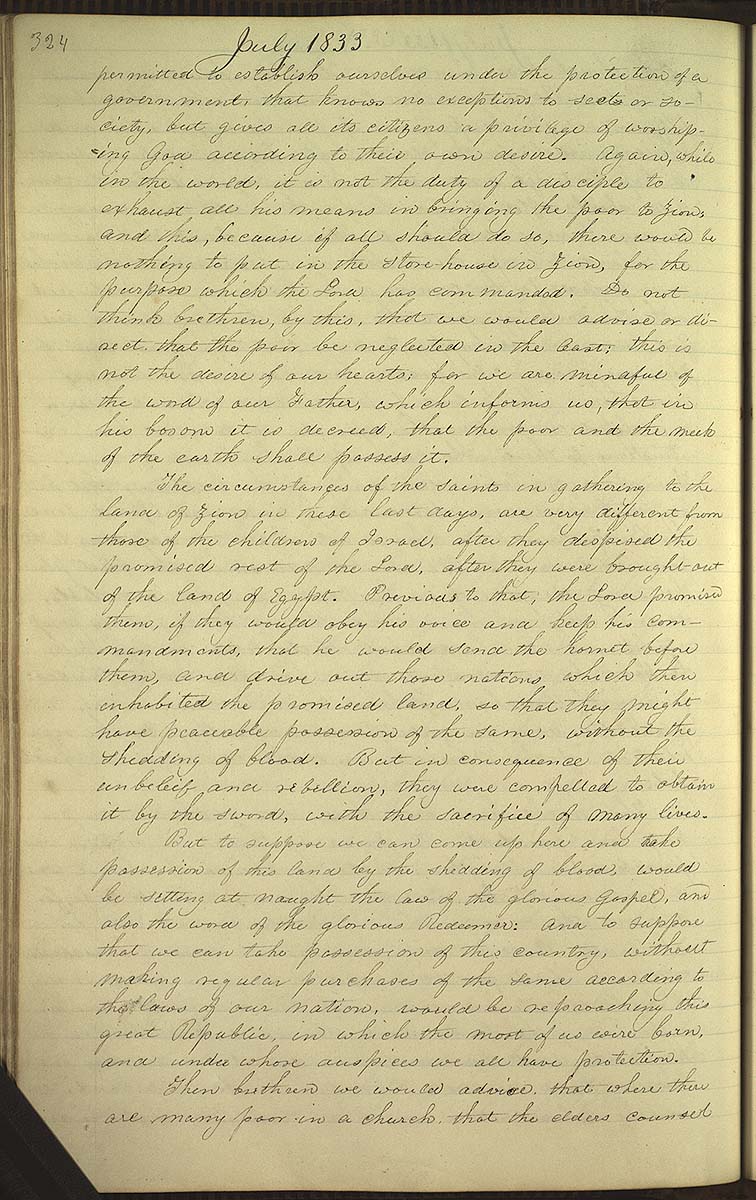 324
July 1833
permitted to establish ourselves under the protection of a
government, that knows no exceptions to sects or so-
ciety, but gives all its citizens a privilege of worship-
=ing God according to their own desire. Again, while
in the world, it is not the duty of a disciple to
exhaust all his means in bringing the poor to Zion;
and this, because if all should do so, there would be
nothing to put in the store-house in Zion, for the
purpose which the Lord has commanded. Do not
think brethren, by this, that we would advise or di-
rect that the poor be neglected in the East; this is
not the desire of our hearts; for we are mindful of
the word of our Father, which informs us, that in
his bosom it is decreed, that the poor and the meek
of the earth shall possess it.
The circumstances of the saints in gathering to the
land of Zion in these last days, are very different from
those of the children of Israel, after they despised the
promised rest of the Lord, after they were brought out
of the land of Egypt. Previous to that, the Lord promised
them, if they would obey his voice and keep his com-
mandments, that he would send the hornet before
them, and drive out those nations which then
inhabited the promised land, so that they might
have peaceable possession of the same, without the
shedding of blood. But in consequence of their
unbelief and rebellion, they were compelled to obtain
it by the sword, with the sacrifice of many lives.
But to suppose we can come up here and take
possession of this land by the shedding of blood, would
be setting at naught the law of the glorious Gospel, and
also the word of the glorious Redeemer: And to suppose
that we can take possession of this country, without
making regular purchases of the same according to
the laws of our nation, would be reproaching this
great Republic, in which the most of us were born,
and under whose auspices we all have protection.
Then brethren we would advice, that where there
are many poor in a church, that the elders counsel